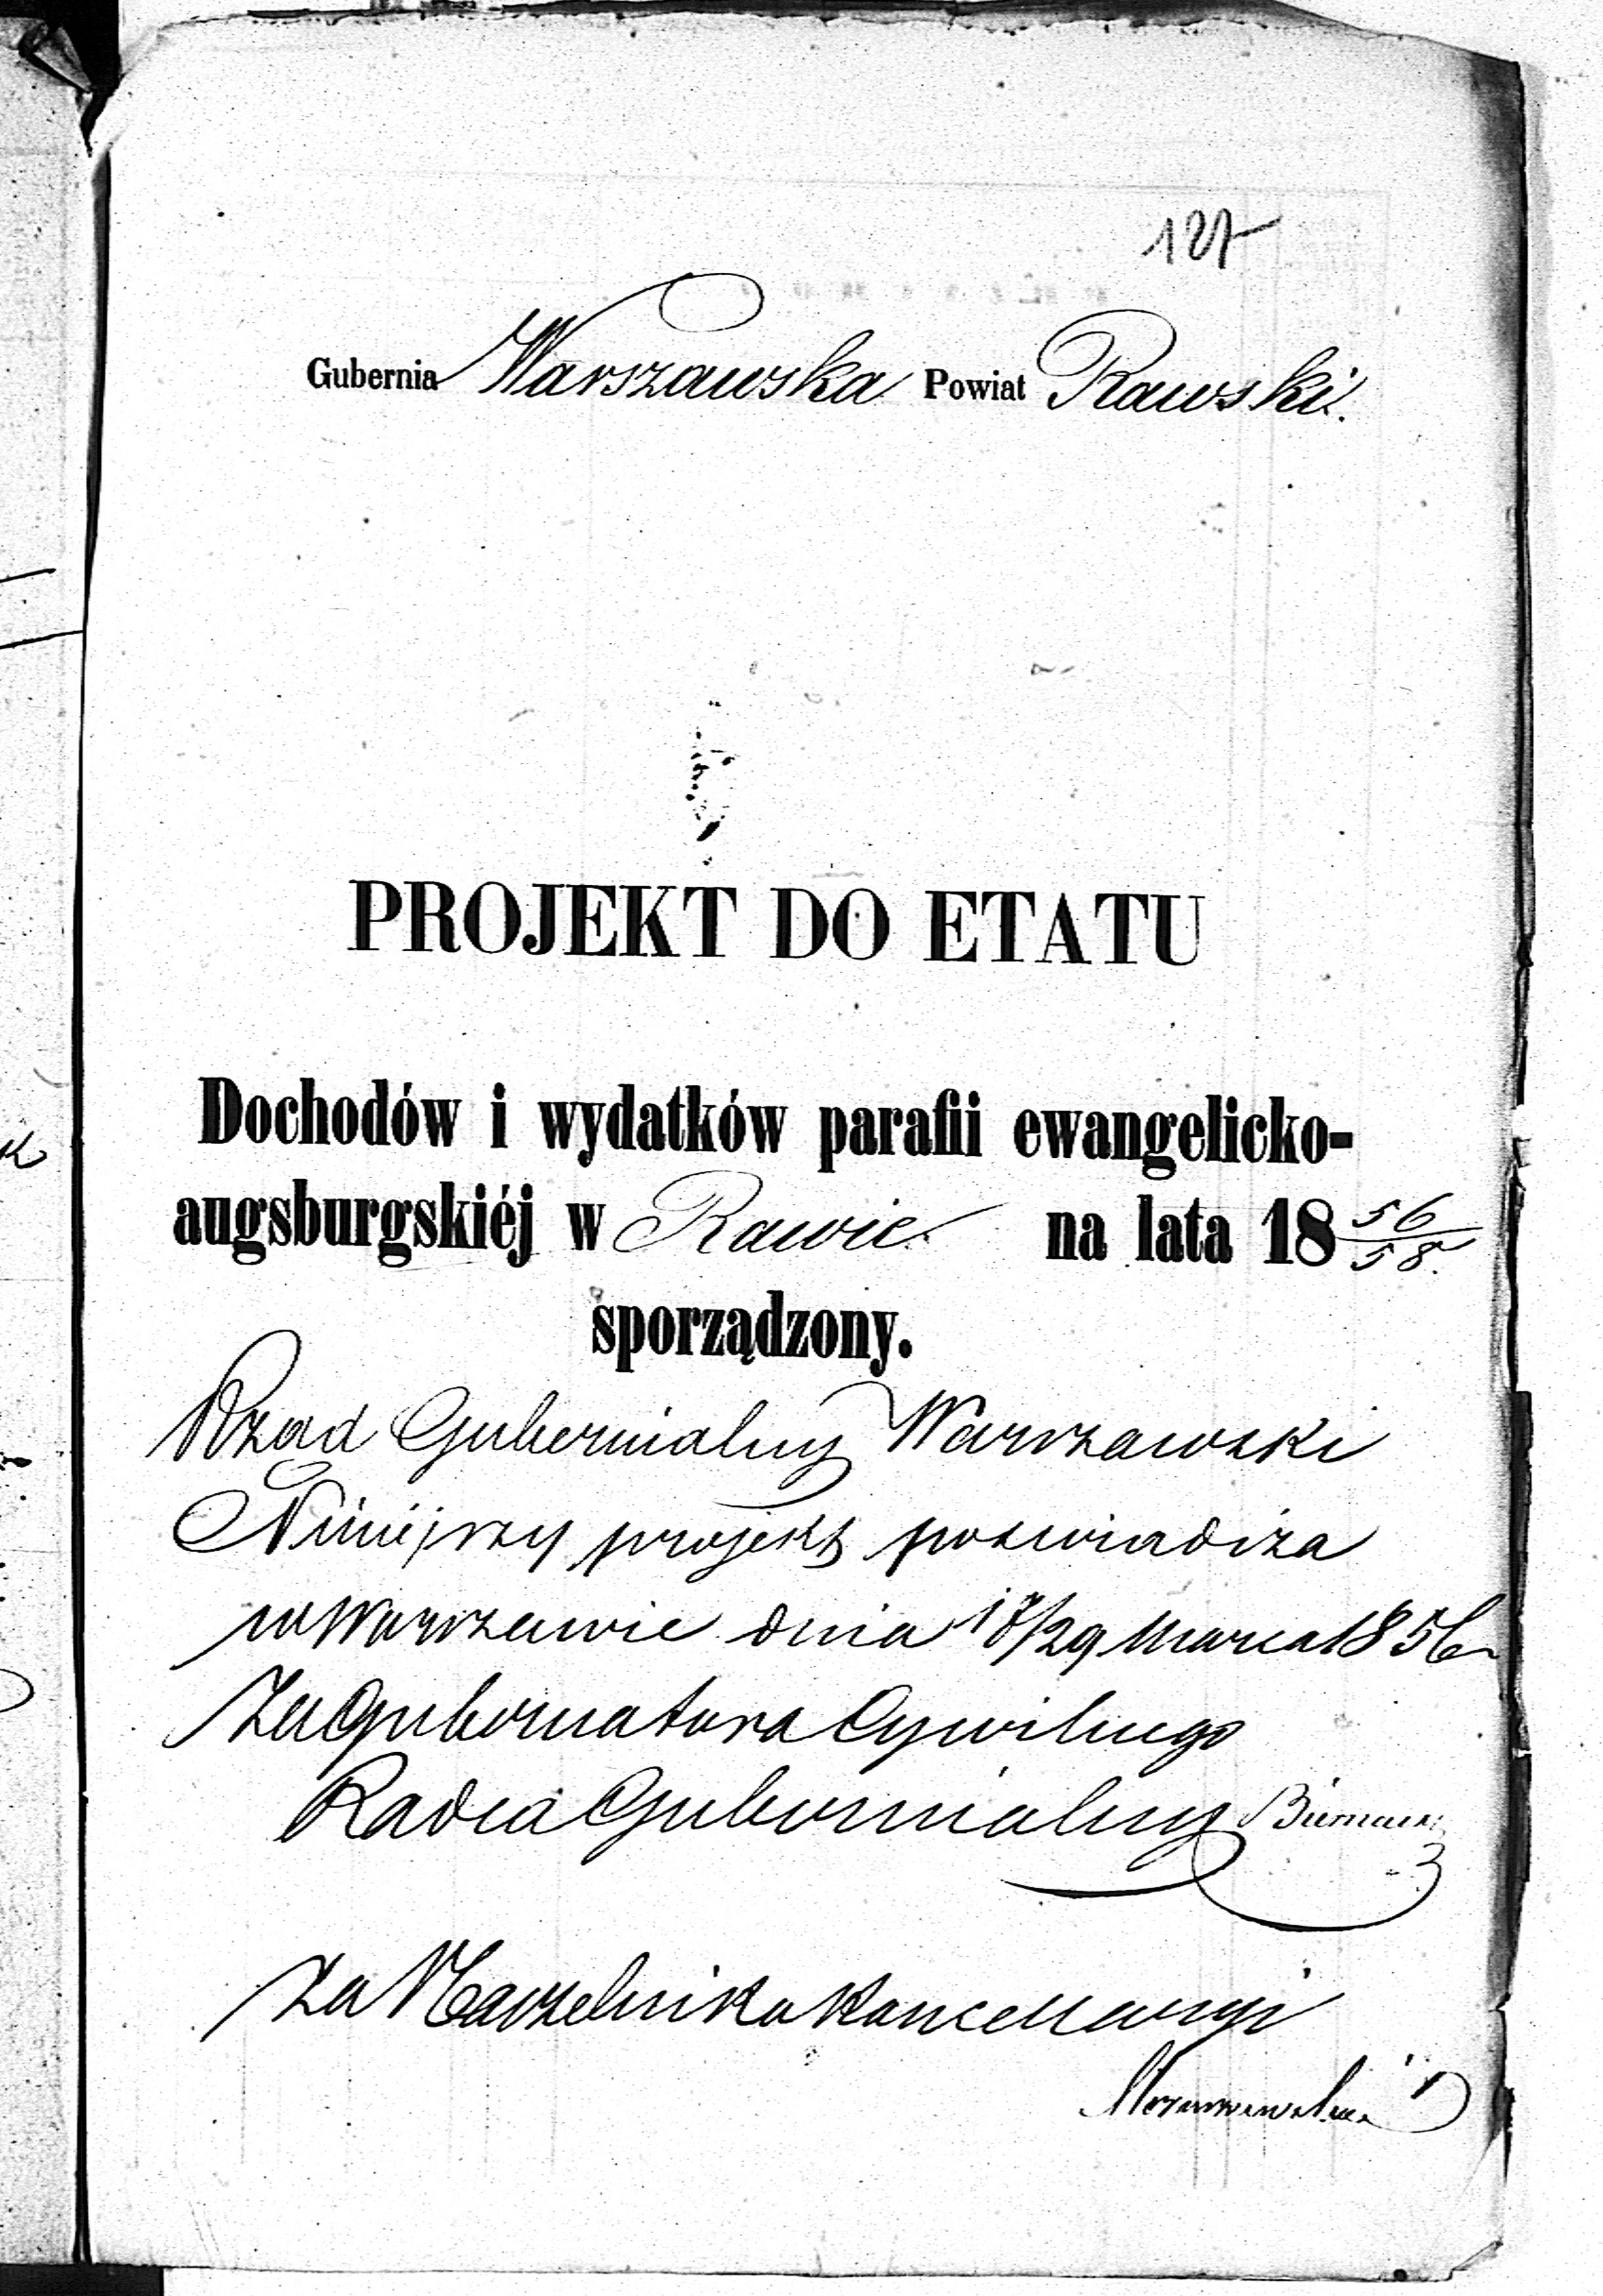 127
Gubernia Warszawska Powiat Rawski.
PROJEKT DO ETATU
Dochodów i wydatków parafii ewangelicko-
augsburgskiéj w Rawie na lata 18 56/58.
sporządzony.
Rząd Gubernialny Warszawski
Niniejszy projekt poswiadcza
w Warszawie dnia 17/29 Marca 1856 r
Za Gubernatora Cywilnego
Radca Gubernialny
Za Naczelnika Kancellaryi